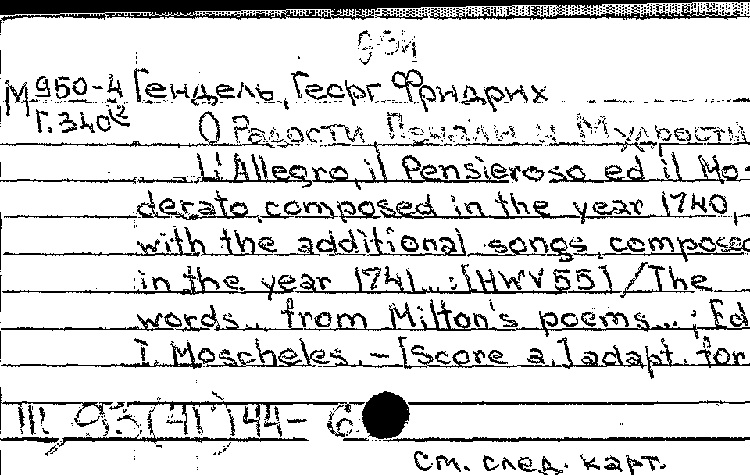 M 950-4 Гендель, Георг Фридрих
Г.340
О Радости, Печали и Мудрости
L'Allegro, il Pensieroso ed il Mo-
derato, composed in the year 1740,
with the additional songs composed
in the year 1741...:[HWV 55] / The
words... from Milton's poems...; Ed
I. Moscheles. - [Score a.] adapt. for
III, 93(41)44-6
См. след. карт.